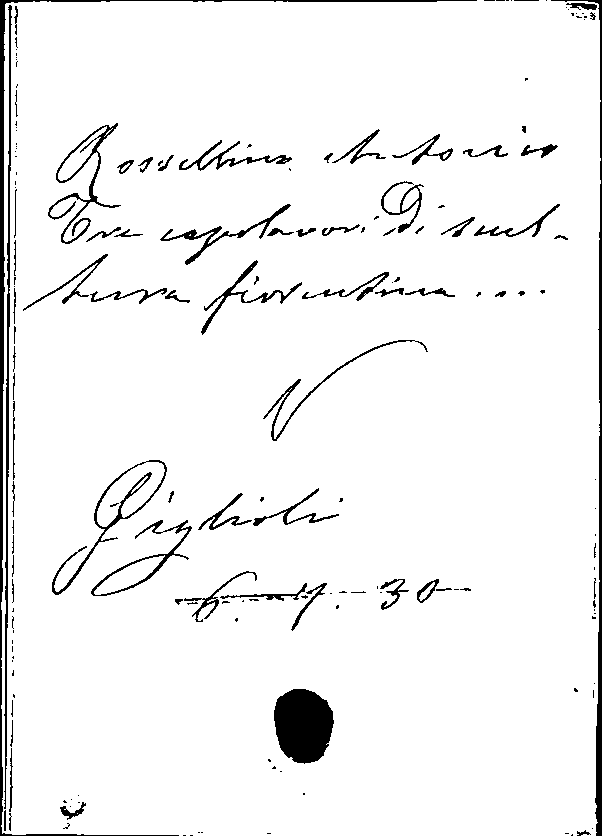 Rossellino Antonio
Tre capolavori di scul-
tura fiorentina....
V
Giglioli
6. 7. 30